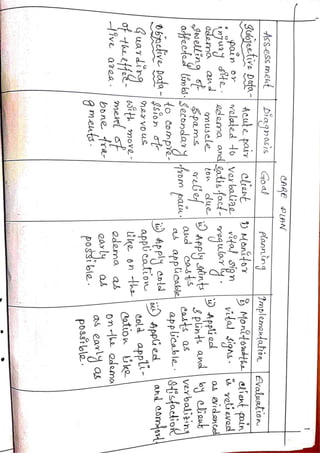 CARE PLAN
Assessment
Diagnosis
Goal
Planning
Implementation
Evaluation
Subjective Data-
pain or
injury site,
edema and
swelling of
affected limbs.
Objective Data-
Guarding
of the effec
-tive area.
Acute pair
related to
edema and
muscle
spams
secondary
to compre
ssion of
nervous
with move-
ment of
bone fra-
gments.
client
verbalize
satisfact-
ion due
relief
from pain.
i) Monitor
vital sign
regularly.
ii) Apply splints
and casts
as applicable
iii) Apply cold
application
like on the
edema as
early as
possible.
i) Monitored the
vital signs.
ii) Applied
splints and
casts as
applicable.
iii) Applied
cold appli-
cation like
on the edema
as early as
possible.
client pain
is relieved
as evidenced
by client
verbalizing
satisfaction
and comfort